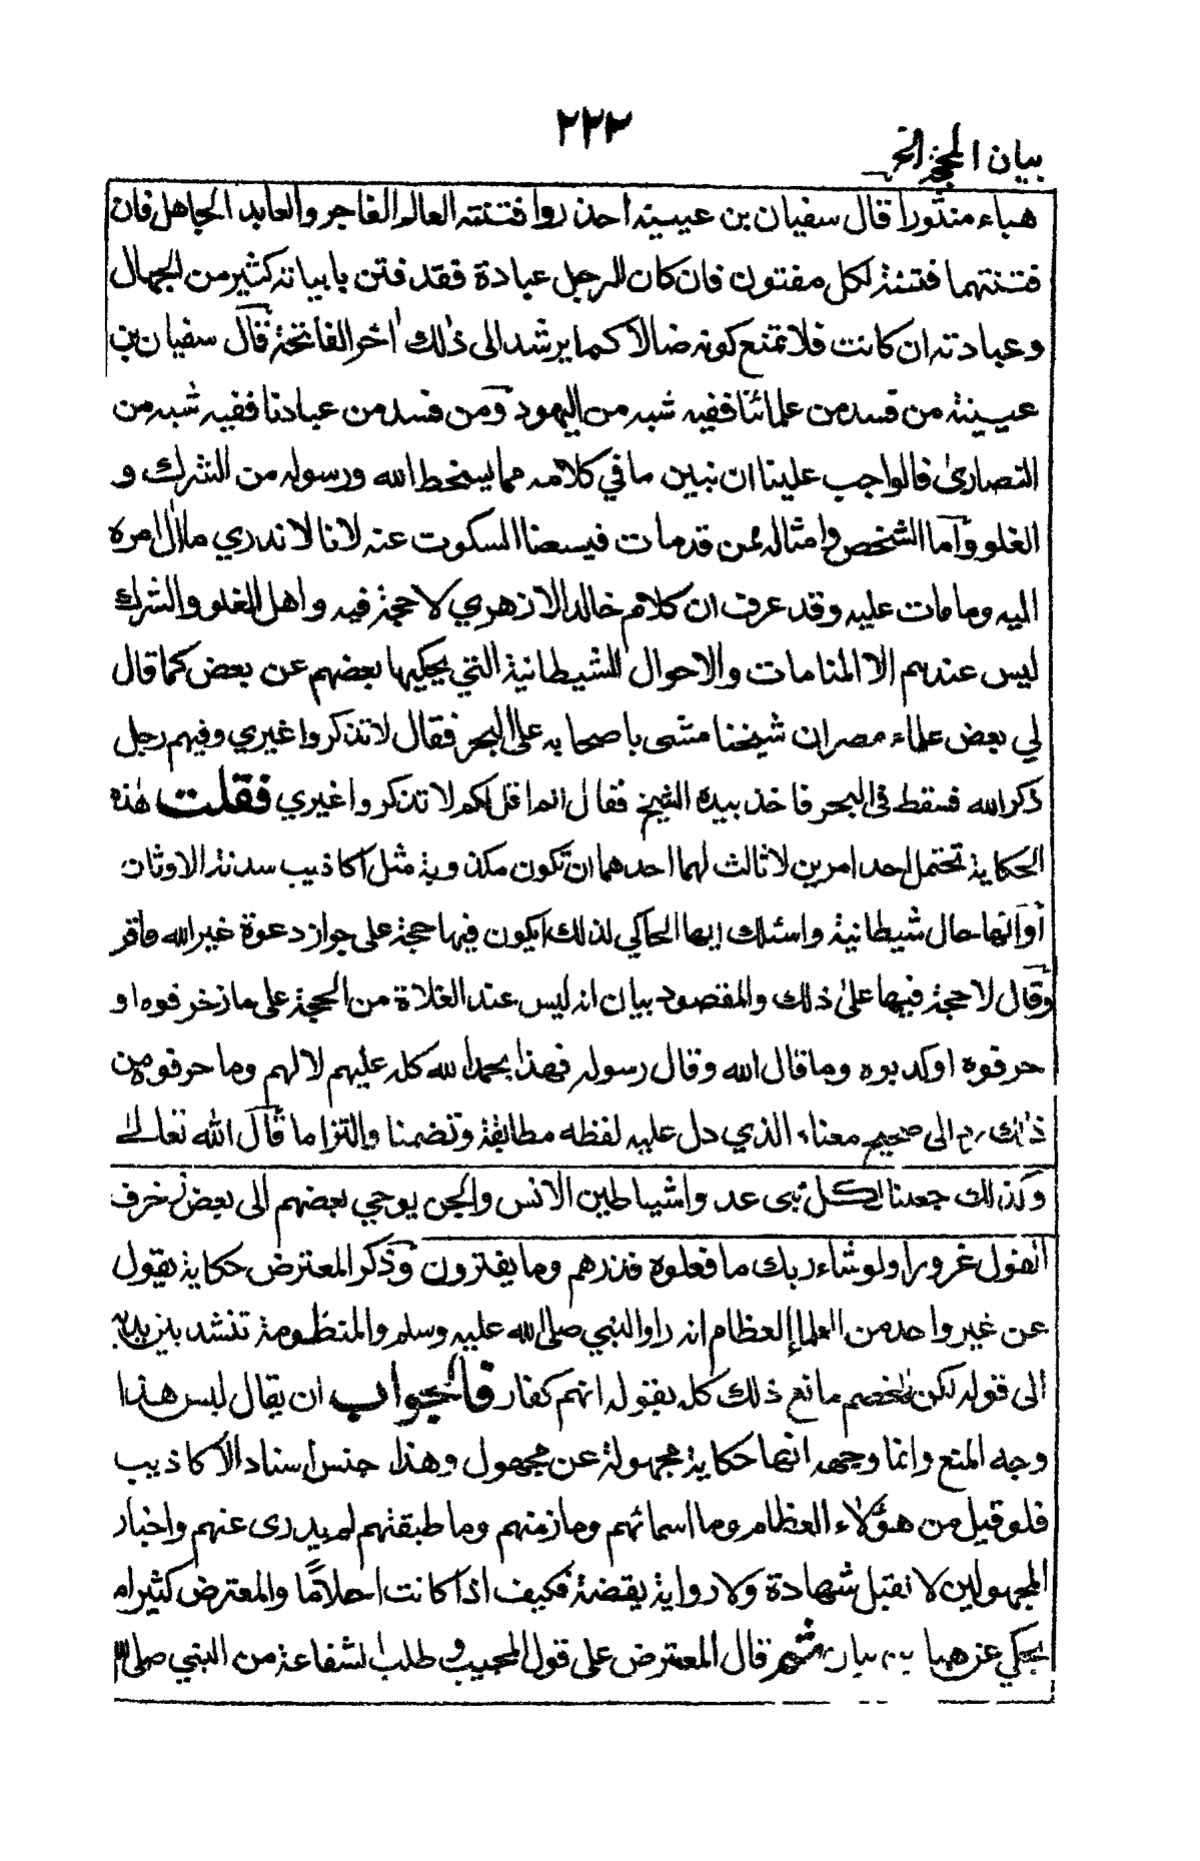 ٢٢٣
بيان المحجة الخ
هباء منثورا قال سفيان بن عيينة احذروا فتنته العالم الفاجر والعابد الجاهل فان
فتنتهما فتنة لكل مفتون فان كان للرجل عبادة فقد فتن بابياته كثير من الجهال
وعبادته ان كانت فلا تمنع كونه ضالا كما يرشد الى ذلك اخر الفاتحة قال سفيان بن
عيينة من فسد من علمائنا ففيه شبه من اليهود ومن فسد من عبادنا ففيه شبه من
النصارى فالواجب علينا ان نبين ما في كلامه مما يسخط الله ورسوله من الشرك و
الغلو وأما الشخص وامثاله ممن قد مات فيسعنا السكوت عنه لانا لا ندري ما آل امره
اليه وما مات عليه وقد عرف ان كلام خالد الازهري لا حجة فيه واهل الغلو والشرك
ليس عندهم الا المنامات والاحوال الشيطانية التي يحكيها بعضهم عن بعض كما قال
لي بعض علماء مصر ان شيخنا مشى باصحابه على البحر فقال لا تذكروا غيري وفيهم رجل
ذكر الله فسقط في البحر فاخذ بيده الشيخ فقال الم اقل لكم لا تذكروا غيري فقلت هذه
الحكاية تحتمل احد امرين لا ثالث لهما احدهما ان تكون مكذوبة مثل اكاذيب سدنة الاوثان
أو انها حال شيطانية واسئلك ايها الحاكي لذلك ايكون فيها حجة على جواز دعوة غير الله فاقر
وقال لا حجة فيها على ذلك والمقصود بيان انه ليس عند الغلاة من الحجة على ما زخرفوه او
حرفوه او كذبوه وما قال الله وقال رسوله فهذا بحمد الله كله عليهم لا لهم وما حرفوه من
ذلك رد الى صحيح معناه الذي دل عليه لفظه مطابقة وتضمنا والتزاما قال الله تعالى
وكذلك جعلنا لكل نبى عدوا شياطين الانس والجن يوحي بعضهم الى بعض زخرف
القول غرورا ولو شاء ربك ما فعلوه فذرهم وما يفترون وذكر المعترض حكاية يقول
عن غير واحد من العلماء العظام انه راوا النبي صلى الله عليه وسلم والمنظومة تنشد بين يديه
الى قوله لكن الخصم مانع ذلك كله بقوله انهم كفار فالجواب ان يقال ليس هذا
وجه المنع وانما وجهه انها حكاية مجهولة عن مجهول وهذا جنس اسناد الاكاذيب
فلو قيل من هؤلاء العظام وما اسمائهم وما زمنهم وما طبقتهم لم يدرى عنهم واخبار
المجهولين لا تقبل شهادة ولا رواية يقضة فكيف اذا كانت احلاما والمعترض كثيرا م
يحكي عن هيا بن بيا ثم قال المعترض على قول المجيب وطلب الشفاعة من النبي صلى الله